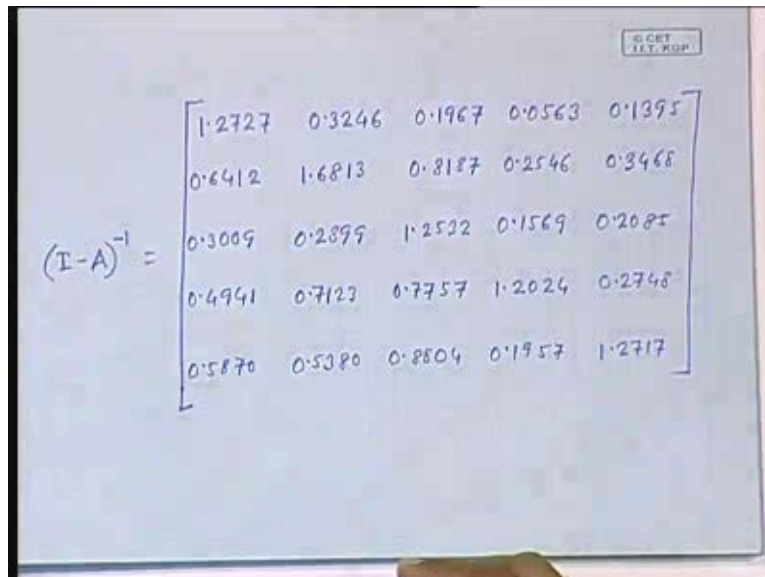 © CET
I.I.T. KGP
1.2727 0.3246 0.1967 0.0563 0.1395
0.6412 1.6813 0.8187 0.2546 0.3468
(I-A)⁻¹ = 0.3009 0.2899 1.2532 0.1569 0.2085
0.4941 0.7123 0.7757 1.2024 0.2748
0.5870 0.5380 0.8804 0.1957 1.2717